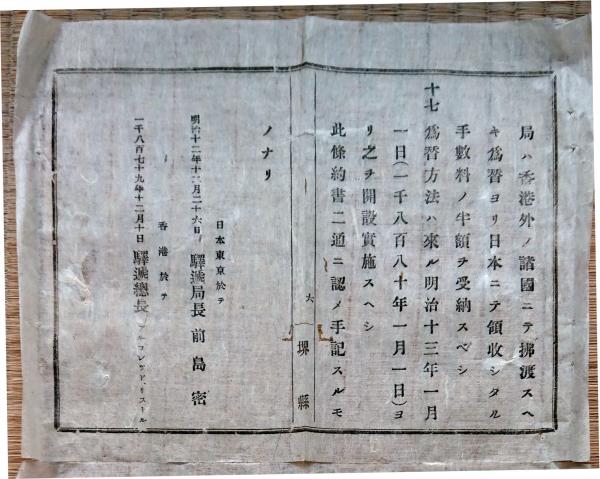 局ハ香港外ノ諸國ニテ拂渡スヘ
キ爲替ヨリ日本ニテ領收シタル
手數料ノ半額ヲ受納スベシ
十七 爲替方法ハ來ル明治十三年一月
一日(一千八百八十年一月一日)ヨ
リ之ヲ開設實施スヘシ
此條約書二通ニ認メ手記スルモ
大
堺縣
ノナリ
日本東京於テ
明治十二年十二月二十六日 驛遞局長 前島密
香港於テ
一千八百七十九年十二月十日 驛遞總長 アルフレッド、リストル